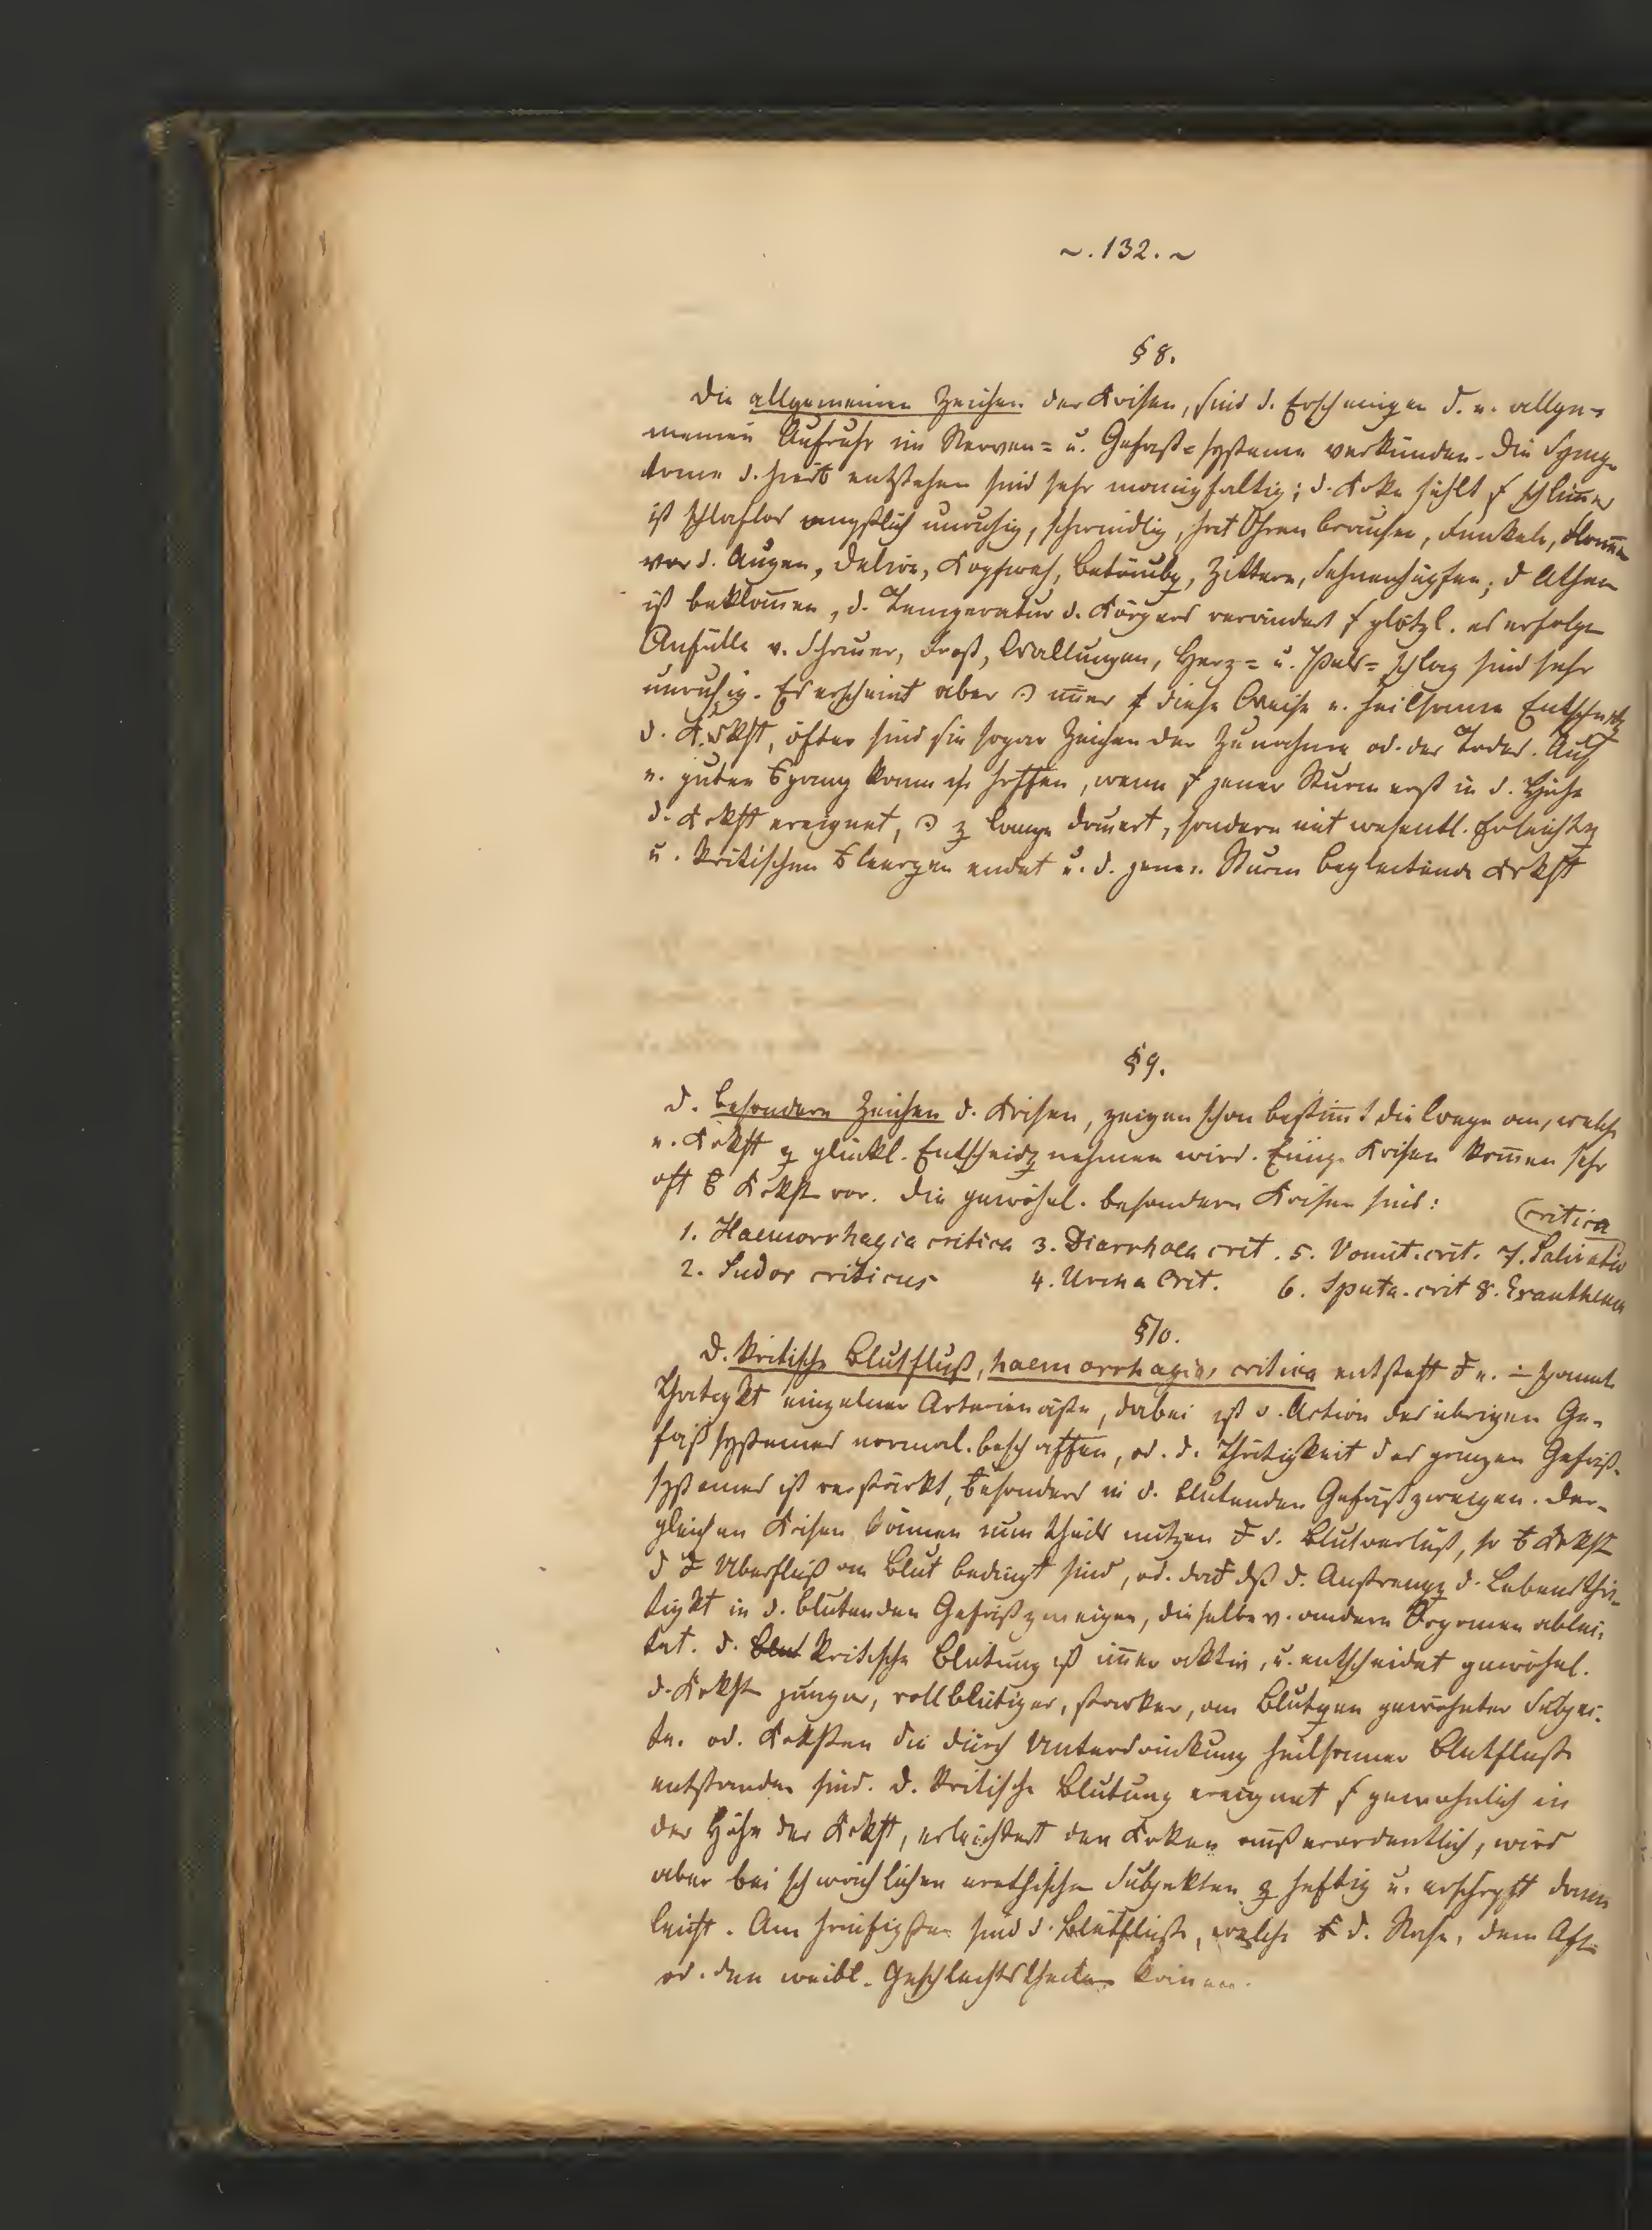 ~. 132. ~
§ 8.
Die allgemeinen Zeichen der Krisen, sind d. Erscheinungen d. e. allge-
meinen Aufruhr im Nerven= u. Gefäß=systeme verkünden. Die Symp-
tome d. entstehen sind sehr manigfaltig; d. Krke fühlt s. schlimer
ist schlaflos ängstlich unruhig, schwindlig, hat Ohren brausen, Funkeln,
vor d. Augen, Delire, Kopfweh, Betäubg, Zittern, Sehnenhüpfen; d Athem
ist beklomen, d. Temperatur d. Körpers verändert s. plötzl. es erfolgen
Anfälle v. Schauer, Frost, Wallungen, Herz= u. Puls=schlag sind sehr
unruhig. Es erscheint aber imer diese Weise e. heilsame
d. Krkht, öfter sind sie sogar Zeichen der Zunahme od. des Todes. Auf
e. guten kann hoffen, wenn s. jener Sturm erst in d. Höhe
d. Krkht ereignet, z lange dauert, sondern mit wesentl. Erleichtg
u. kritischen endet u. d. jenen Sturm begleitende Krkht
§ 9.
D. besondern Zeichen d. Krisen, zeigen schon bestimt die Wege an, welche
e. Krkht z glückl. Entscheidg nehmen wird. Einige Krisen komen sehr
oft Krkht vor. Die gewöhnl. besondern Krisen sind:
critica
1. Haemorrhagia critica 3. Diarrhoea crit. 5. Vomit. crit. 7. Salivatio
2. Sudor criticus 4. Urina Crit. 6. Sputa. crit 8. Exanthema
§ 10.
D. kritische Blutfluß, haemorrhagia critica entsteht e.
Thätigkt einzelner Arterienäste, dabei ist d. Action des übrigen Ge-
fäßsystemes normal. beschaffen, od. d. Thätigkeit des ganzen Gefäß-
systemes ist verstärkt, besonders in d. blutenden Gefäßzweigen. Der-
gleichen Krisen könen zum theils nutzen d. Blutverlust, so Krkht
d Uberfluß an Blut bedingt sind, od. dß d. Anstrengg d. Lebensthä-
tigkt in d. blutenden Gefäßzweigen, dieselbe v. andern Organen ablei-
tet. D. Blut kritische Blutung ist imer aktiv, u. entscheidet gewöhnl.
d. Krkht junger, vollblütiger, starker, an Blutgen gewöhnter Subjec-
te. od. Krkhten die durch Unterdrückung heilsamer Blutfluße
entstanden sind. D. kritische Blutung ereignet s. gewöhnlich in
der Höhe der Krkht, erleichtert den Krken außerordentlich, wird
aber bei schwächlichen erethischen Subjekten z heftig u. erschöpft dann
leicht. Am häufigsten sind d. Blutflüße, welche d. Nase, dem After
od. den weibl. Geschlechtstheilen komen.